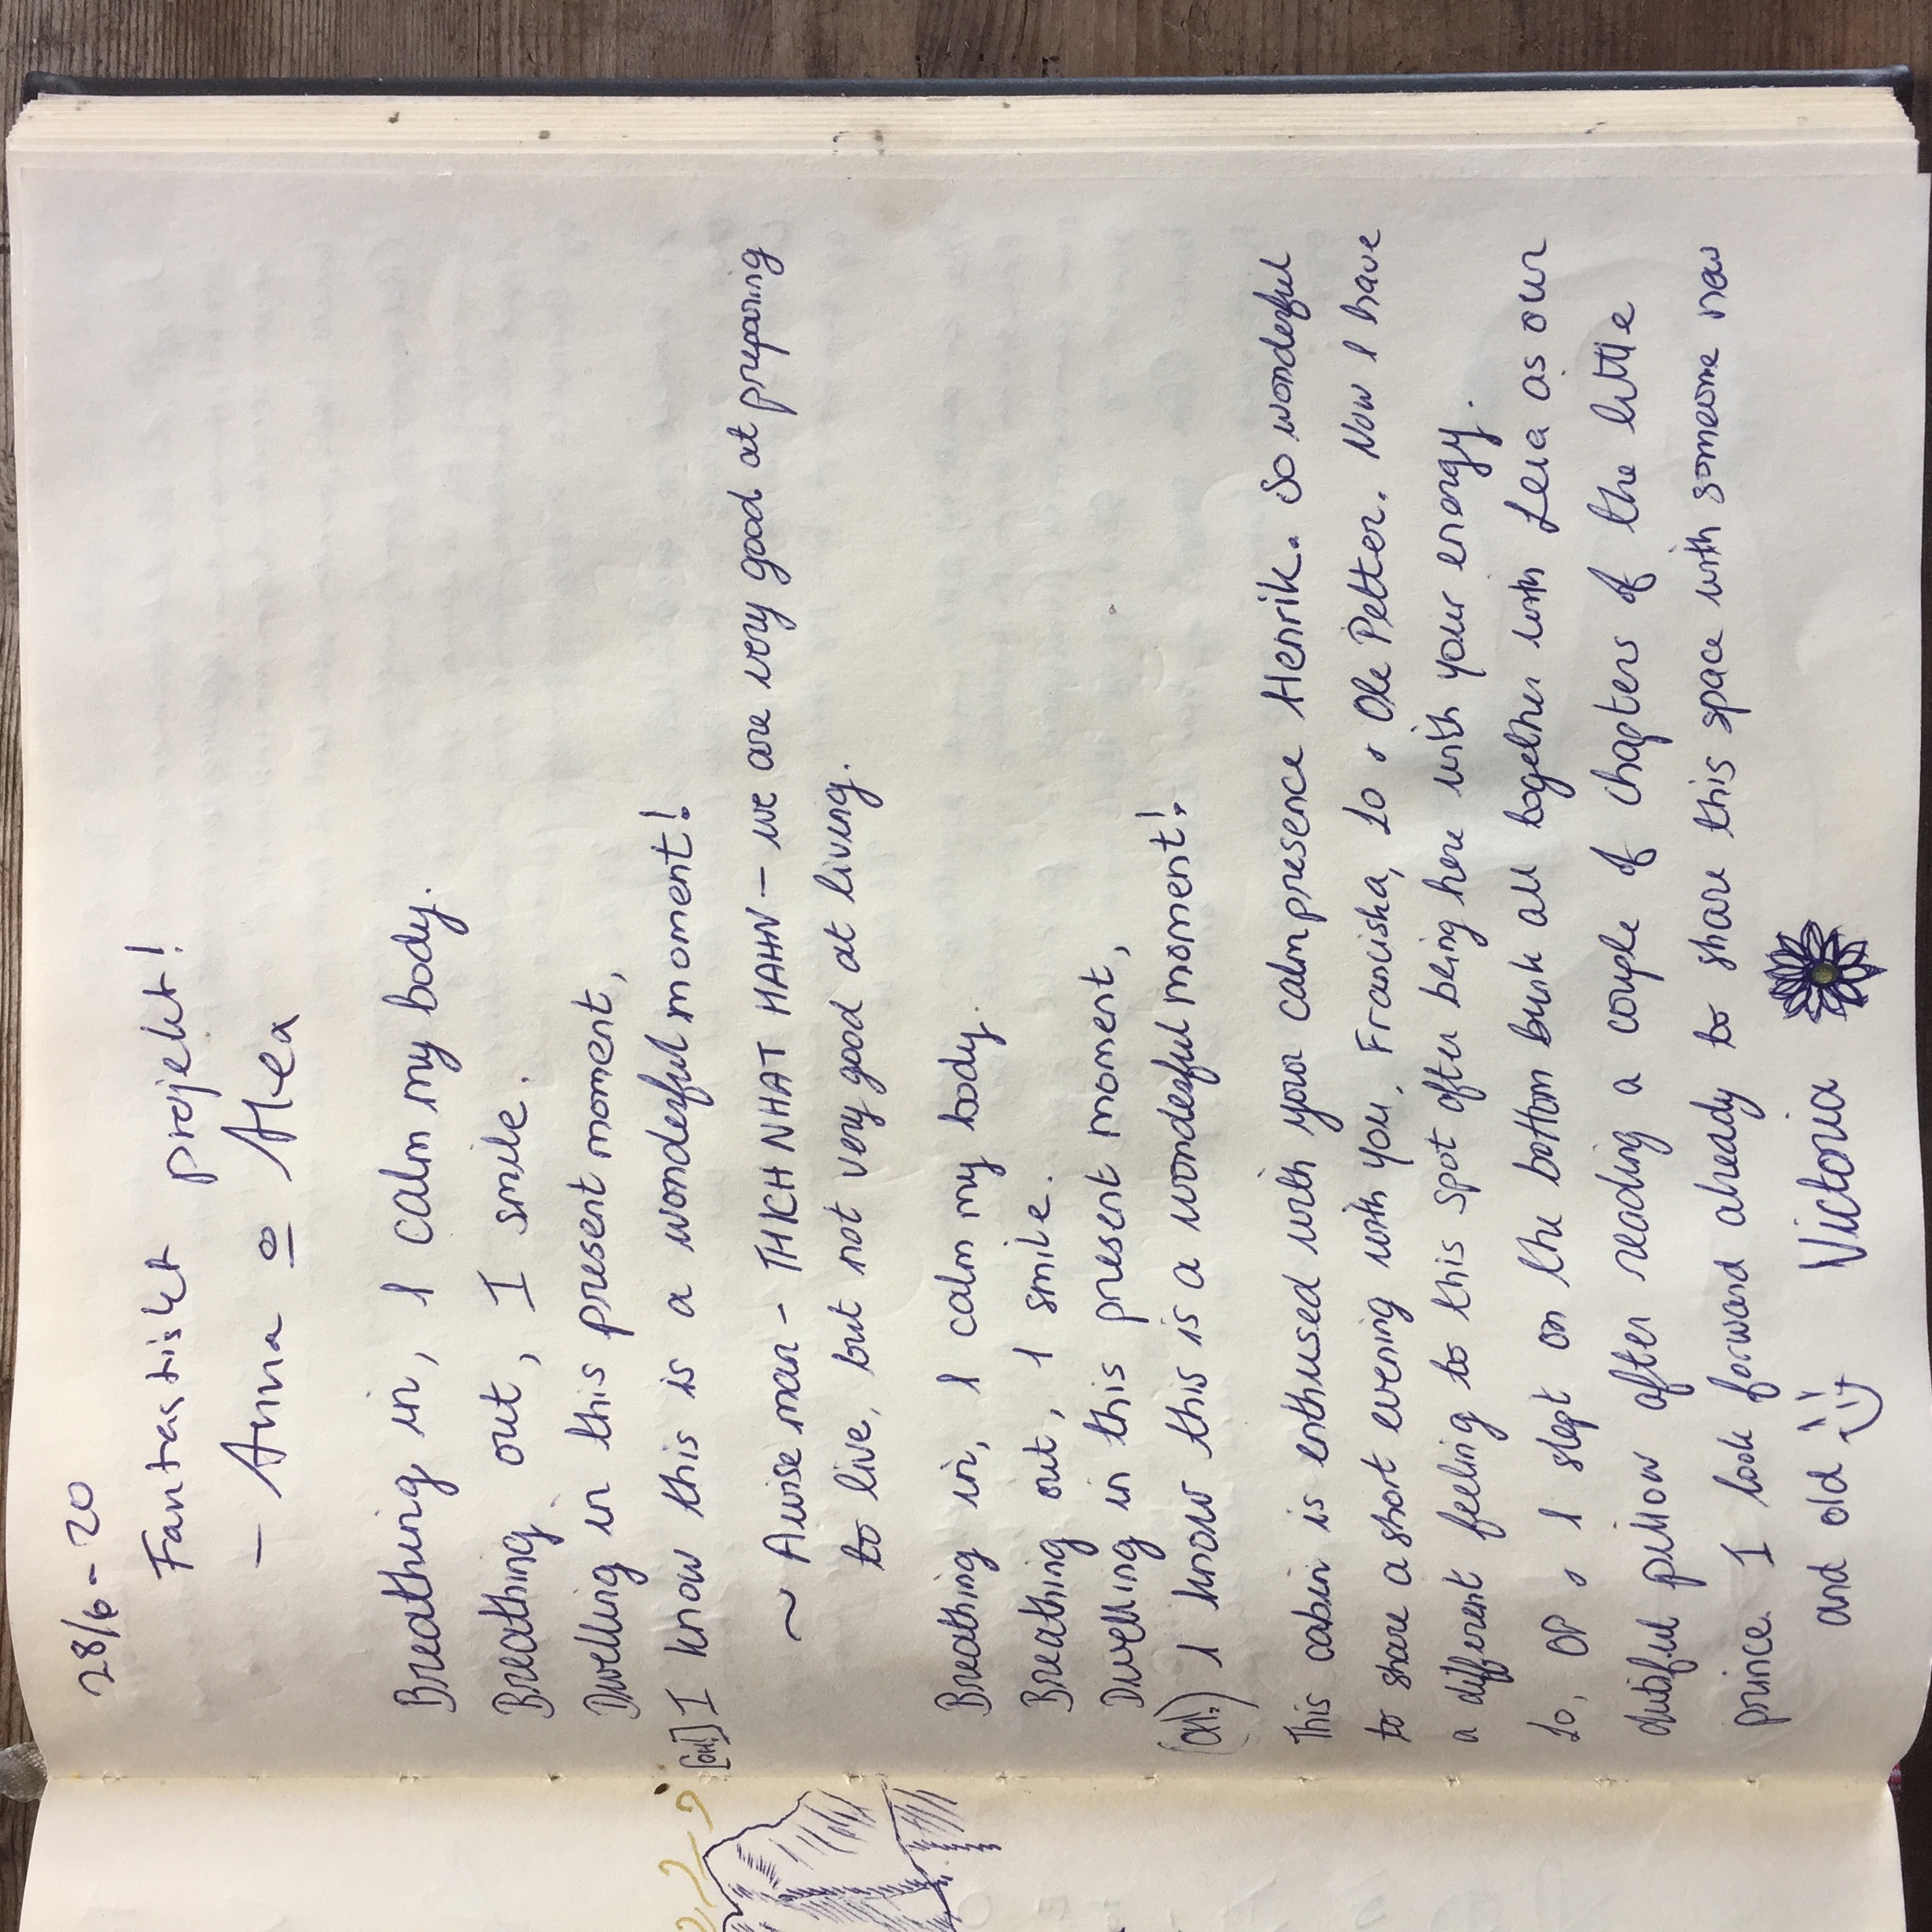 28/6-20
Fantastiskt projekt!
- Anna o Hea
Breathing in, I calm my body.
Breathing out, I smile.
Dwelling in this present moment,
[oh!] I know this is a wonderful moment!
~ A wise man - THICH NHAT HAHN - we are very good at preparing
to live, but not very good at living.
Breathing in, I calm my body.
Breathing out, I smile.
Dwelling in this present moment,
(oh!) I know this is a wonderful moment!
This cabin is enthused with your calm presence Henrik. So wonderful
to share a short evening with you, Francisha, Lo & Ole Petter. Now I have
a different feeling to this spot after being here with your energy.
Lo, OP & I slept on the bottom bunk all together with Leia as our
dutiful pillow after reading a couple of chapters of the little
prince. I look forward already to share this space with someone new
and old Victoria